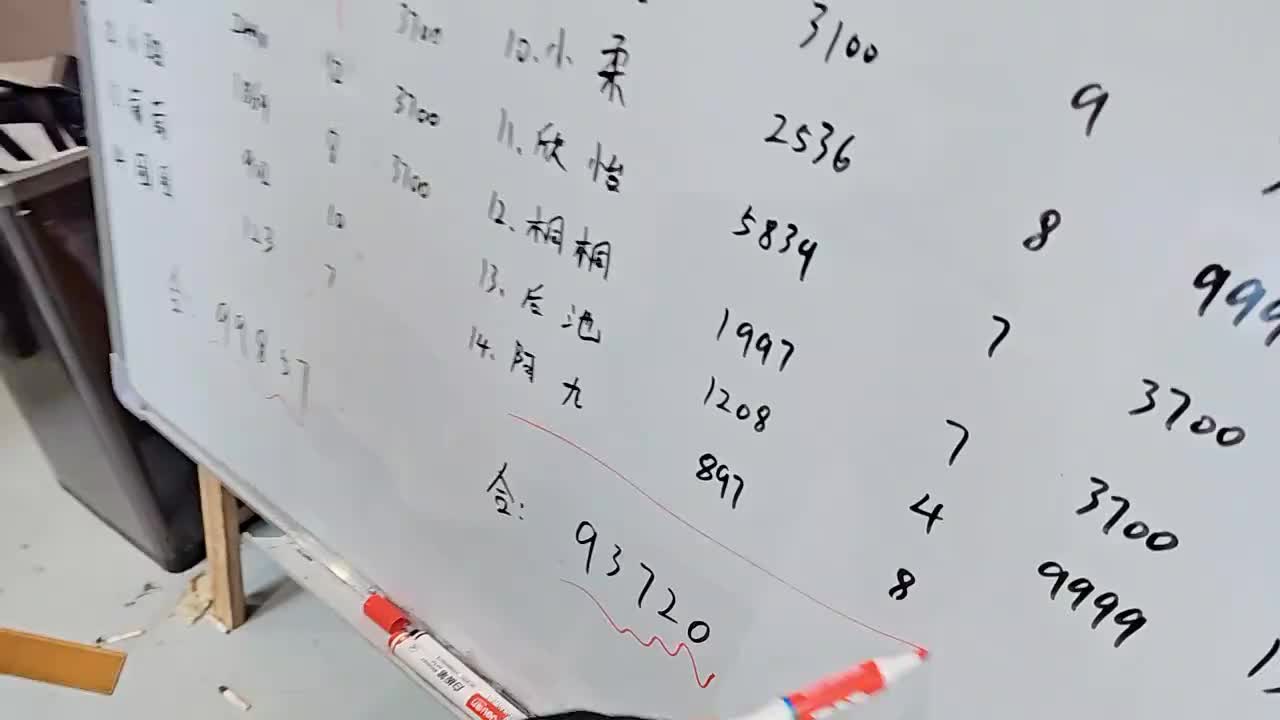 3700
3700
12
3700
8
10
123
7
合: 99857
3100
10. 小柔 2536 9
11. 欣怡 5834 8 999
12. 桐桐 1997 7 3700
13. 后池 1208 7 3700
14. 阿九 897 4 9999
8
合: 93720